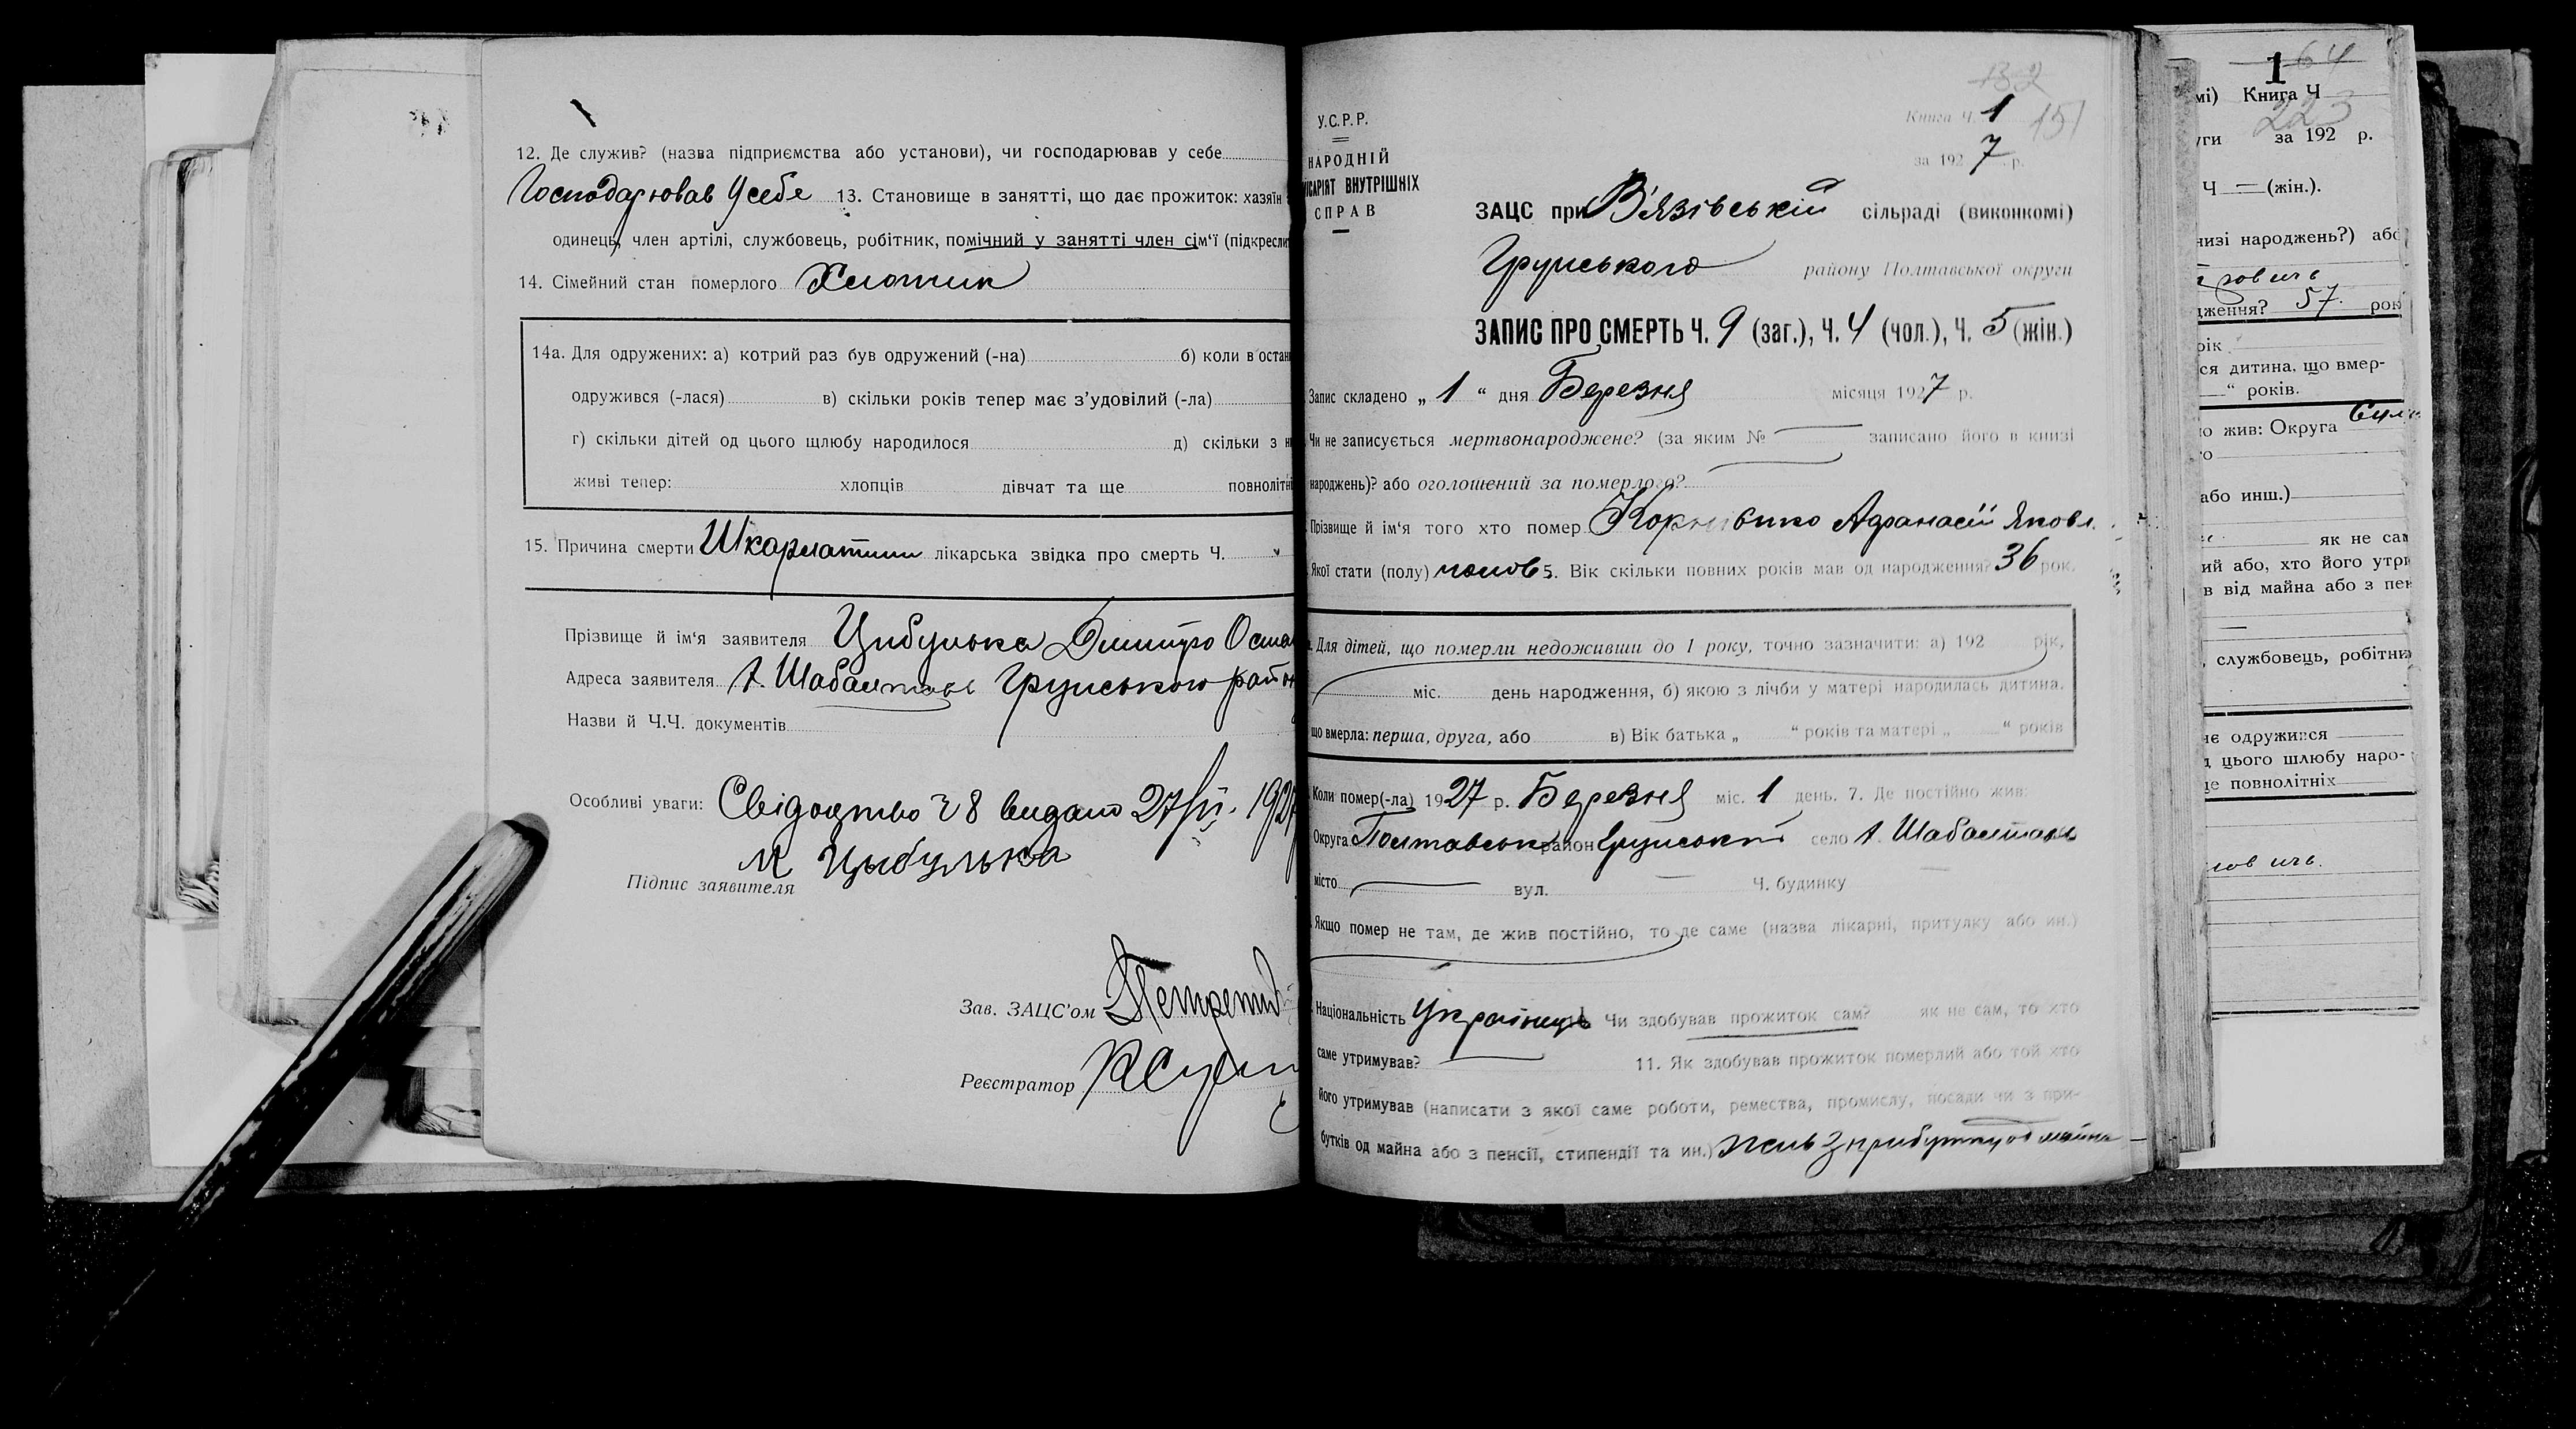 12. Де служив? (назва підприємства або установи), чи господарював у себе
Господарював у себе 13. Становище в занятті, що дає прожиток: хазяїн
одинець, член артілі, службовець, робітник, помічний у занятті член сім‘ї (підкреслит
14. Сімейний стан померлого Хлопчик
14а. Для одружених: а) котрий раз був одружений (-на) б) коли в остан
одружився (-лася) в) скільки років тепер має з’удовілий (-ла)
г) скільки дітей од цього щлюбу народилося д) скільки з н
живі тепер: хлопців дівчат та ще повнолітні
15. Причина смерти Шкарлатини лікарська звідка про смерть Ч.
Прізвище й ім‘я заявителя Цибулька Дмитро Оста
Адреса заявителя х. Шабалтаїв Грунського район
Назви й Ч.Ч. документів
Особливі уваги: Свідоцтво 8 видано 27/II 1927
Цыбулька
Підпис заявителя
Зав. ЗАЦС’ом
Реєстратор
У.С.Р.Р.
НАРОДНІЙ
ІСАРІЯТ ВНУТРІШНІХ
СПРАВ
132
Книга Ч. 1 151
за 1927 р.
ЗАЦС при В'язівській сільраді (виконкомі)
Грунського району Полтавської округи
ЗАПИС ПРО СМЕРТЬ Ч. 9 (заг.), Ч. 4 (чол.), Ч. 5 (жін.)
Запис складено „ 1 “ дня Березня місяця 1927 р.
Чи не записується мертвонароджене? (за яким № записано його в книзі
народжень)? або оголошений за померлого?
Прізвище й ім‘я того хто помер Корнієнко Афанасій Яковл
Якої стати (полу) чолов 5. Вік скільки повних років мав од народження? 36 рок.
Для дітей, що померли недоживши до 1 року, точно зазначити: а) 192 рік,
міс. день народження, б) якою з лічби у матері народилась дитина.
що вмерла: перша, друга, або в) Вік батька „ “ років та матері „ “ років
Коли помер(-ла) 1927 р. Березня міс. 1 день. 7. Де постійно жив:
Округа Полтавськ район Грунський село х. Шабалтаїв
місто вул. Ч. будинку
Якщо помер не там, де жив постійно, то де саме (назва лікарні, притулку або ин.)
Національність Українець Чи здобував прожиток сам? як не сам, то хто
саме утримував? 11. Як здобував прожиток померлий або той хто
його утримував (написати з якої саме роботи, ремества, промислу, посади чи з при-
бутків од майна або з пенсії, стипендії та ин.) жив з прибутку од майна
1 64
мі) Книга Ч
223
уги за 192 р.
Ч — (жін.).
низі народжень?) або
дження? 57 рок
рік
ся дитина, що вмер-
“ років.
о жив: Округа
або инш.)
як не сам
ий або, хто його утри
в від майна або з пен
, службовець, робітни
не одружився
д цього шлюбу наро-
ще повнолітніх